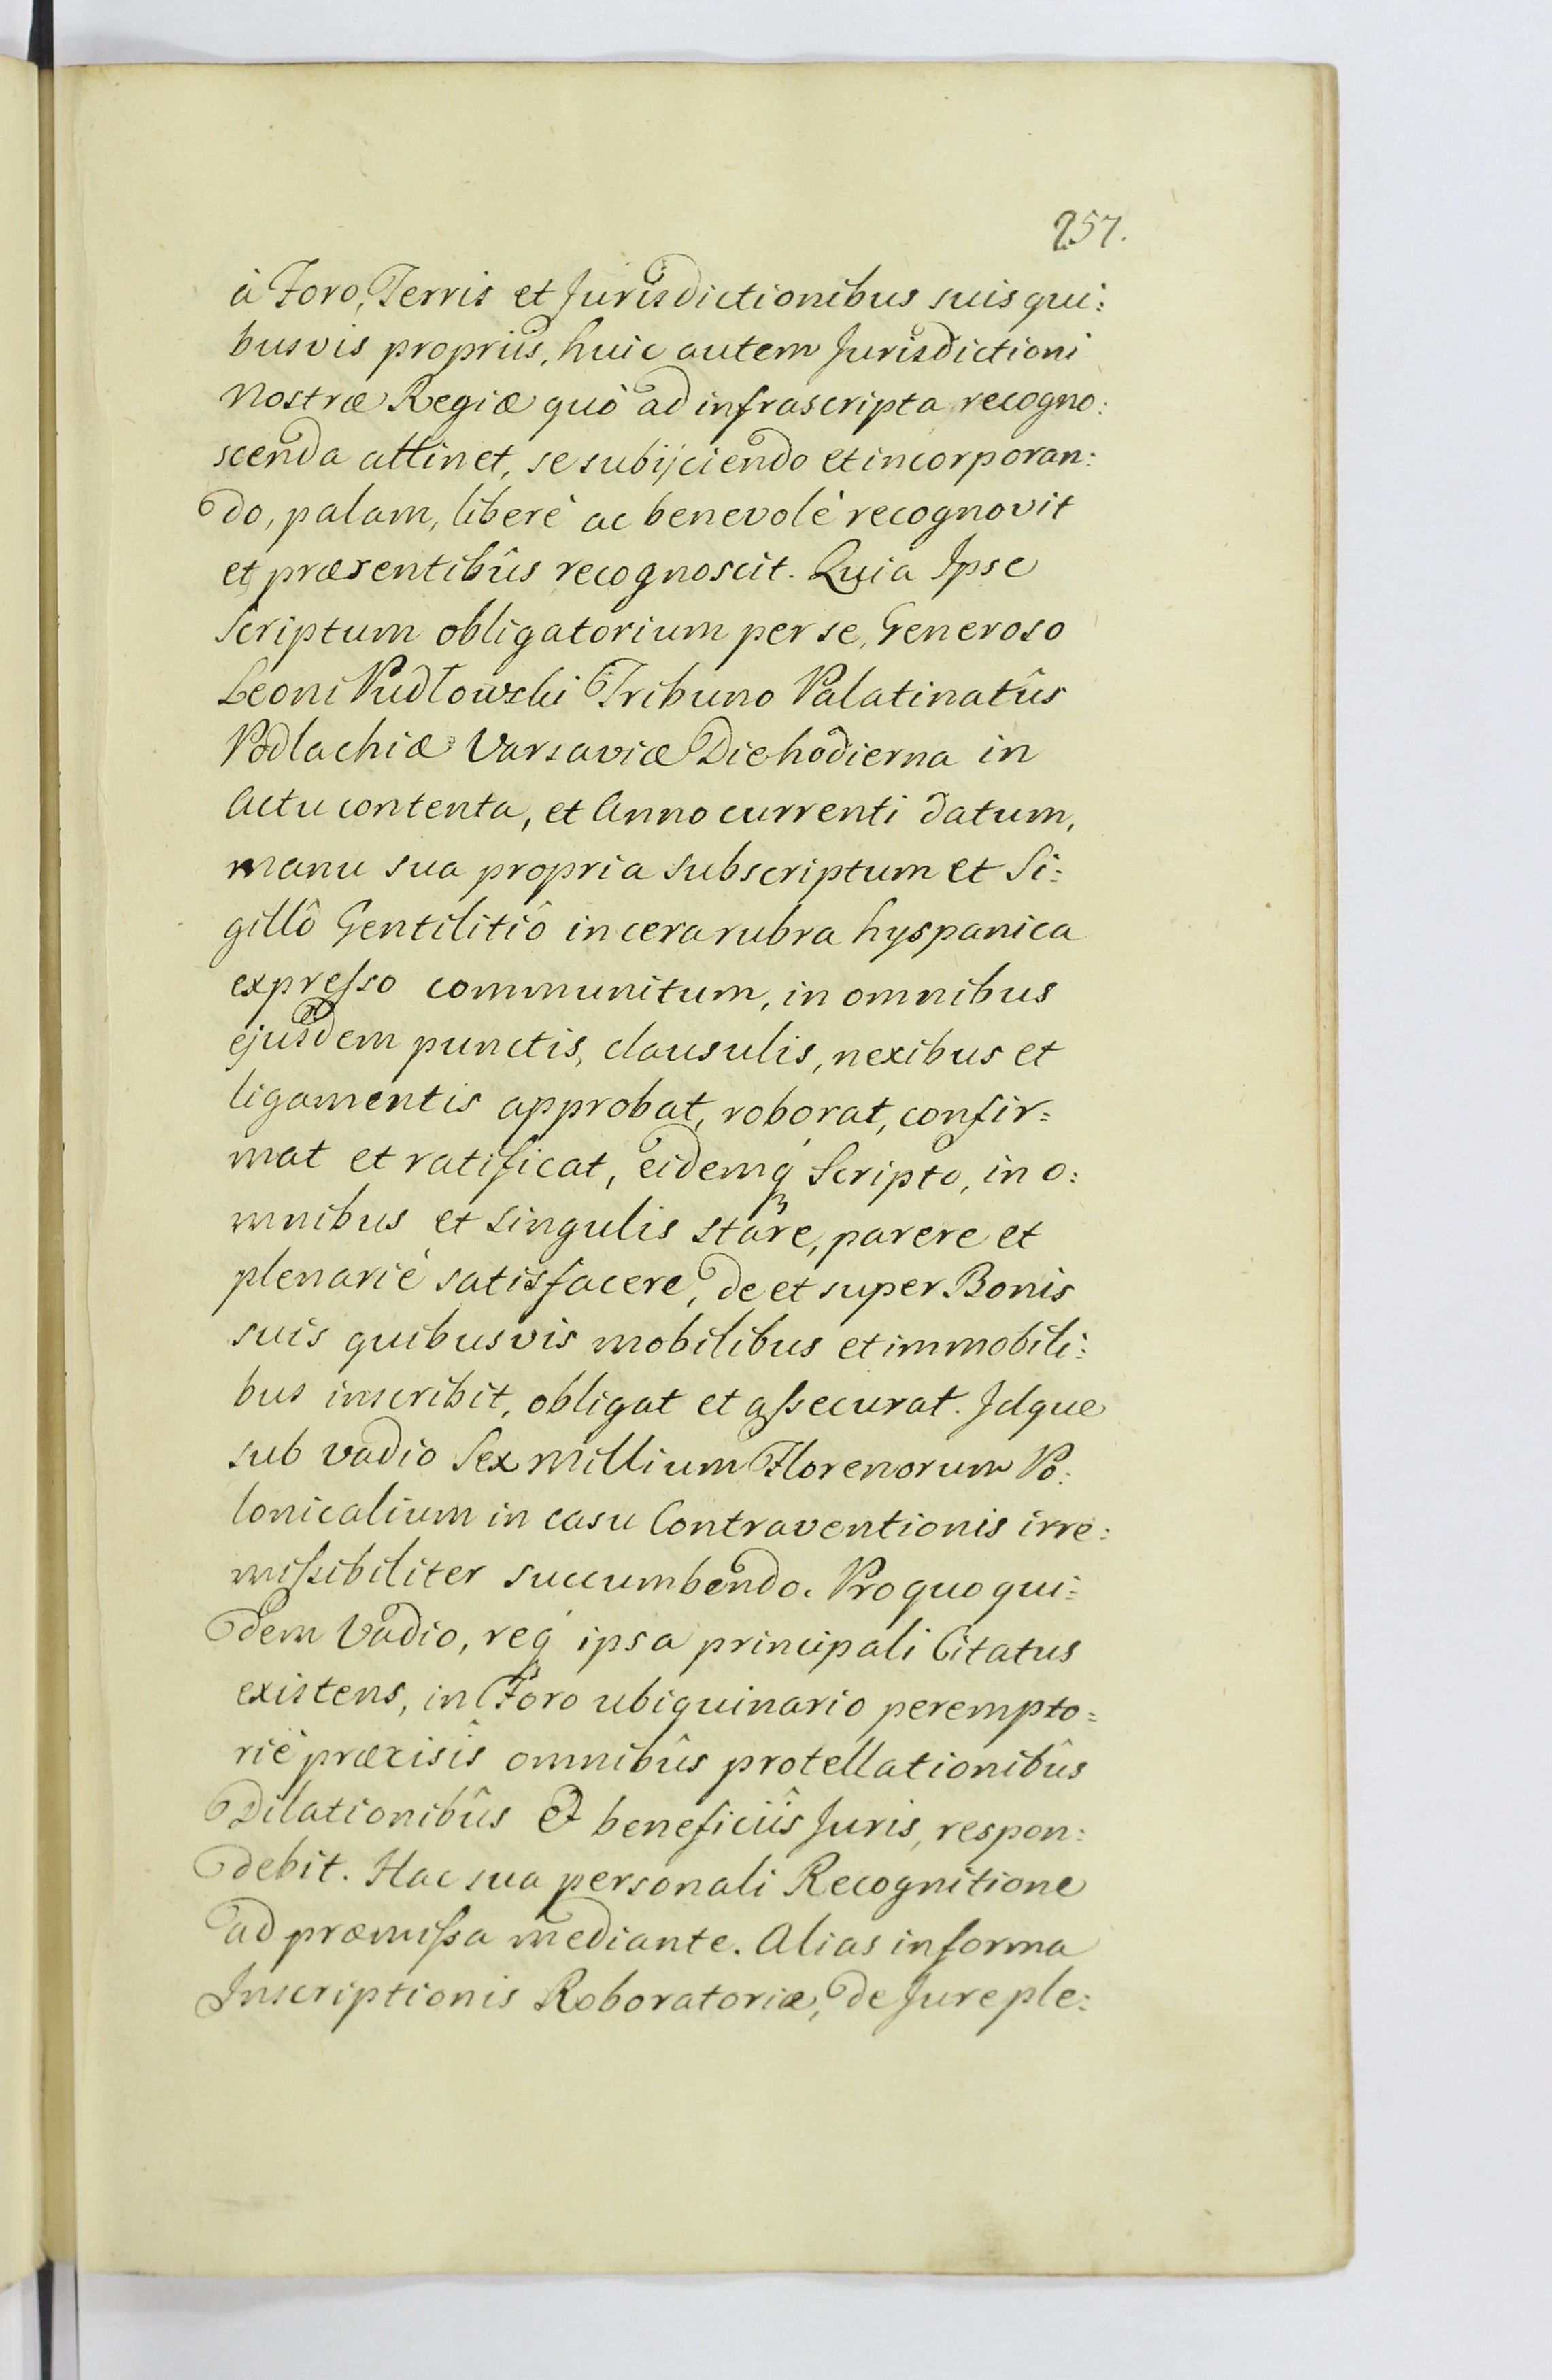 257.
à Foro, Terris et Jurisdictionibus suis qui:
busvis propriis, huic autem Jurisdictioni
Nostræ Regiæ quò ad infrascripta recogno:
scenda attinet, se subijciendo et incorporan:
do, palam, liberè ac benevolè recognovit
et præsentibûs recognoscit. Quia Ipse
Scriptum obligatorium per se, Generoso
Leoni Pudłowski Tribuno Palatinatûs
Podlachiæ Varsaviæ Die hodierna in
Actu contenta, et Anno currenti datum,
manu sua propria subscriptum et Si:
gillô Gentilitiô in cera rubra hyspanica
expresso communitum, in omnibus
ejusdem punctis, clausulis, nexibus et
ligamentis approbat, roborat, confir=
mat et ratificat, eidemq́ Scripto, in o:
mnibus et singulis stare, parere et
plenariè satisfacere, de et super Bonis
suis quibusvis mobilibus et immobili:
bus inscribit, obligat et assecurat. Idque
sub vadio Sex Millium Florenorum Po:
lonicalium in casu Contraventionis irre:
missibiliter succumbendo. Pro quo qui:
dem Vadio, req́ ipsa principali Citatus
existens, in Foro ubiquinario perempto=
riè præcisîs omnibûs protellationibûs
Dilationibûs & beneficiîs Juris, respon:
debit. Hac sua personali Recognitione
ad præmissa mediante. Alias in forma
Inscriptionis Roboratoriæ, de Jure ple: